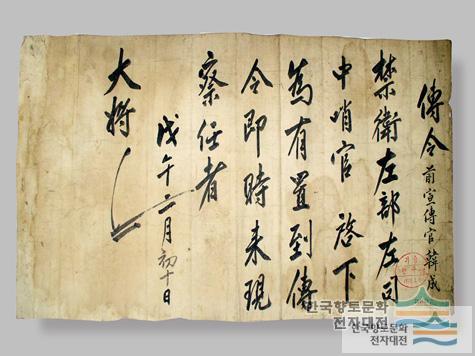 傳令 前宣傳官 韓威
禁衛左部左司
中哨官 啓下
爲有置到傳
令即時來現
察任者
戊午二月初十日
大將
한국향토문화
전자대전
한국향토문화
전자대전